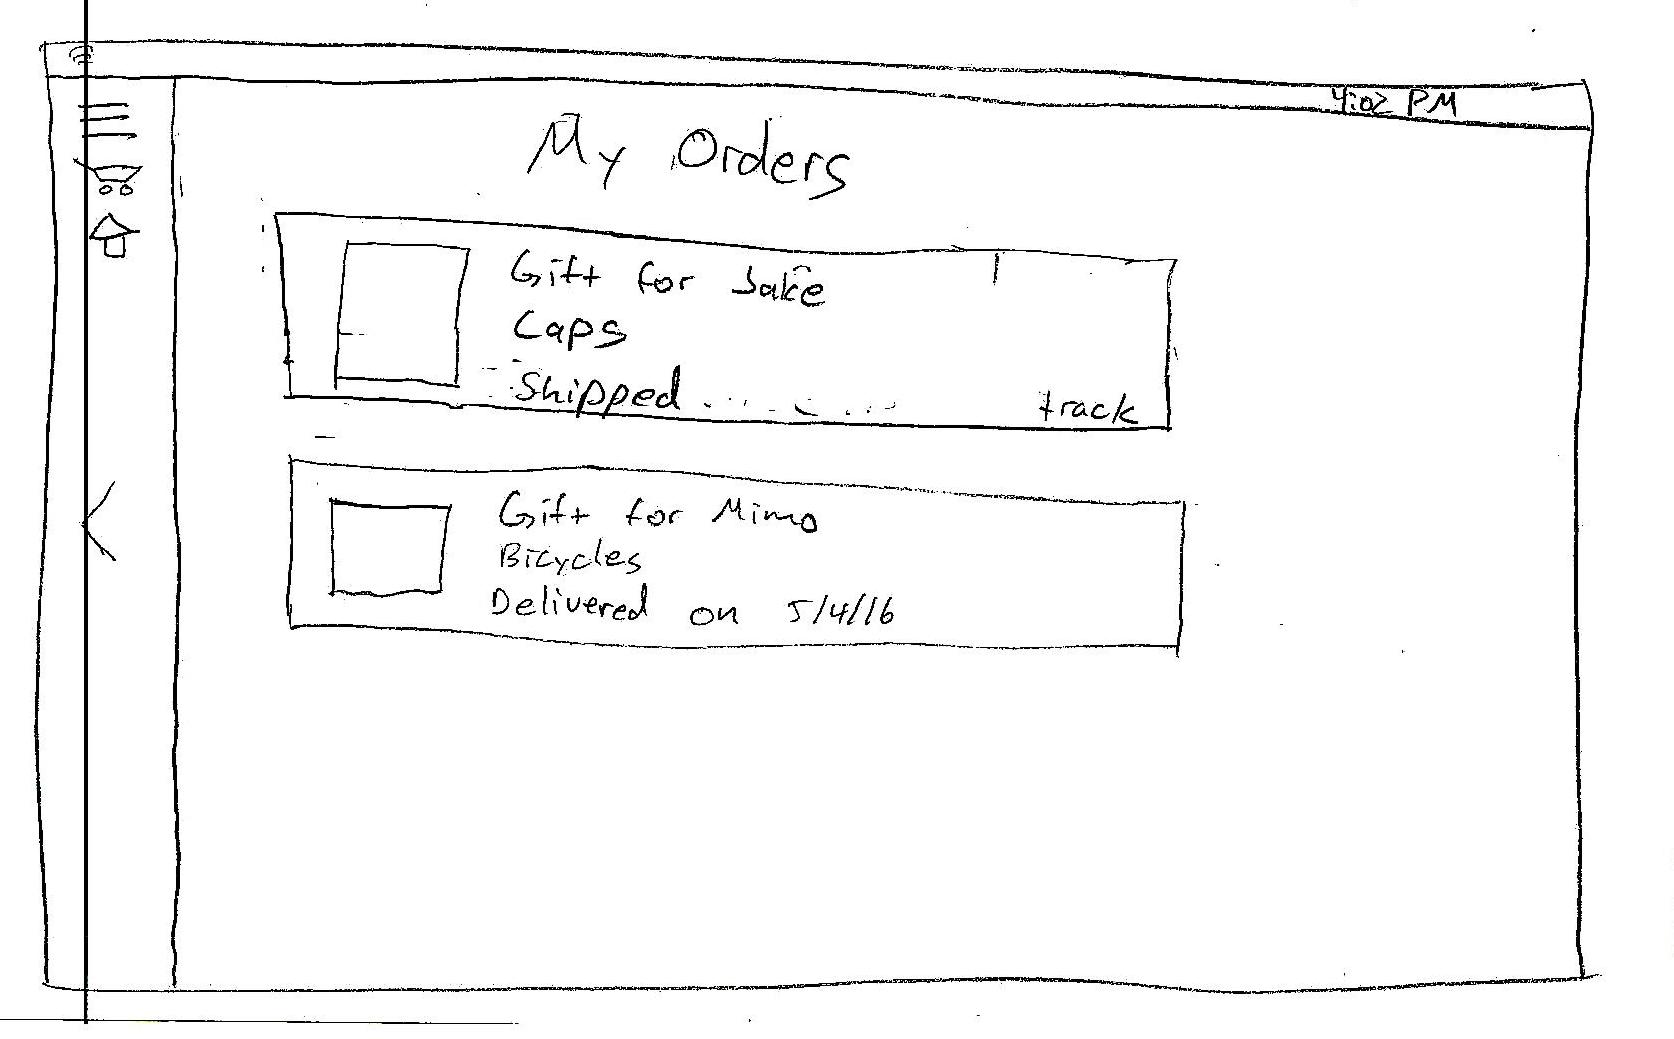 4:02 PM
My Orders
Gift for Jake
Caps
Shipped
track
Gift for Mimo
Bicycles
Delivered on 5/4/16